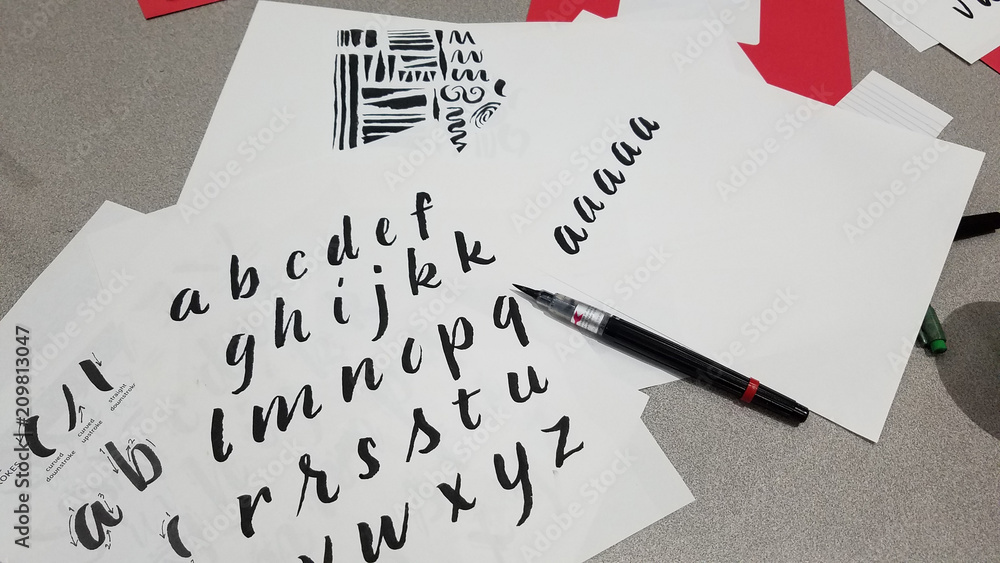 aaaaaa
a b c d e f
g h i j k k
l m n o p q
r r s s t u
v w x y z
straight downstroke
curved upstroke
curved downstroke
a b
Adobe Stock | #209813047